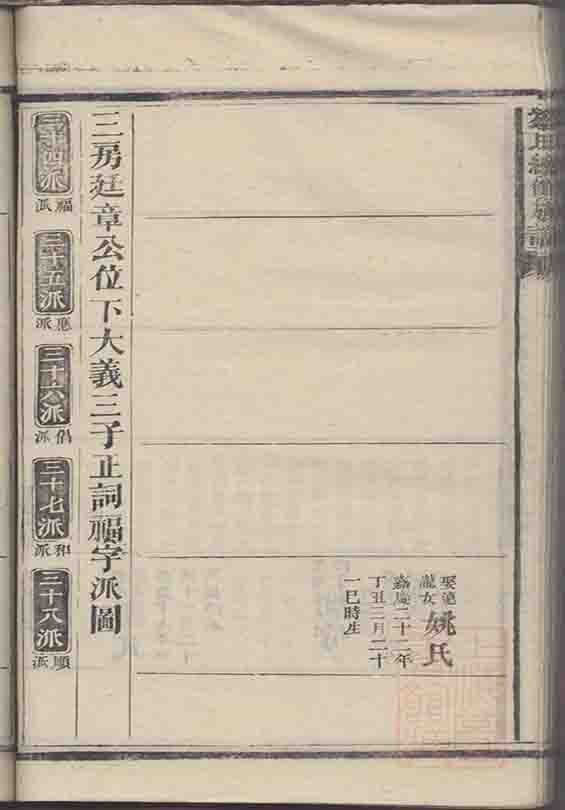 姚氏
嘉慶二十二年
丁丑二月二十
一巳時生
三房廷章公位下大義三子正詞福字派圖
三十四派
福派
三十五派
應派
三十六派
倡派
三十七派
和派
三十八派
順派